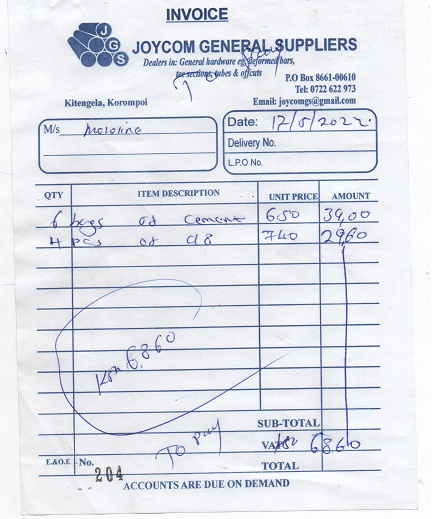 INVOICE
JGS
JOYCOM GENERAL SUPPLIERS
Dealers in: General hardware eg deformed bars,
tee sections, tubes & offcuts
To Pay
P.O Box 8661-00610
Tel: 0722 622 973
Kitengela, Korompoi
Email: joycomgs@gmail.com
M/s
Date: 17/5/2022.
Delivery No.
L.P.O No.
QTY ITEM DESCRIPTION UNIT PRICE AMOUNT
6 bags of cement 650 39,00
4 pcs of d8 740 2960
Ksh 6860
To Pay
SUB-TOTAL
VAT 6860
E.&O.E No. 204
TOTAL
ACCOUNTS ARE DUE ON DEMAND